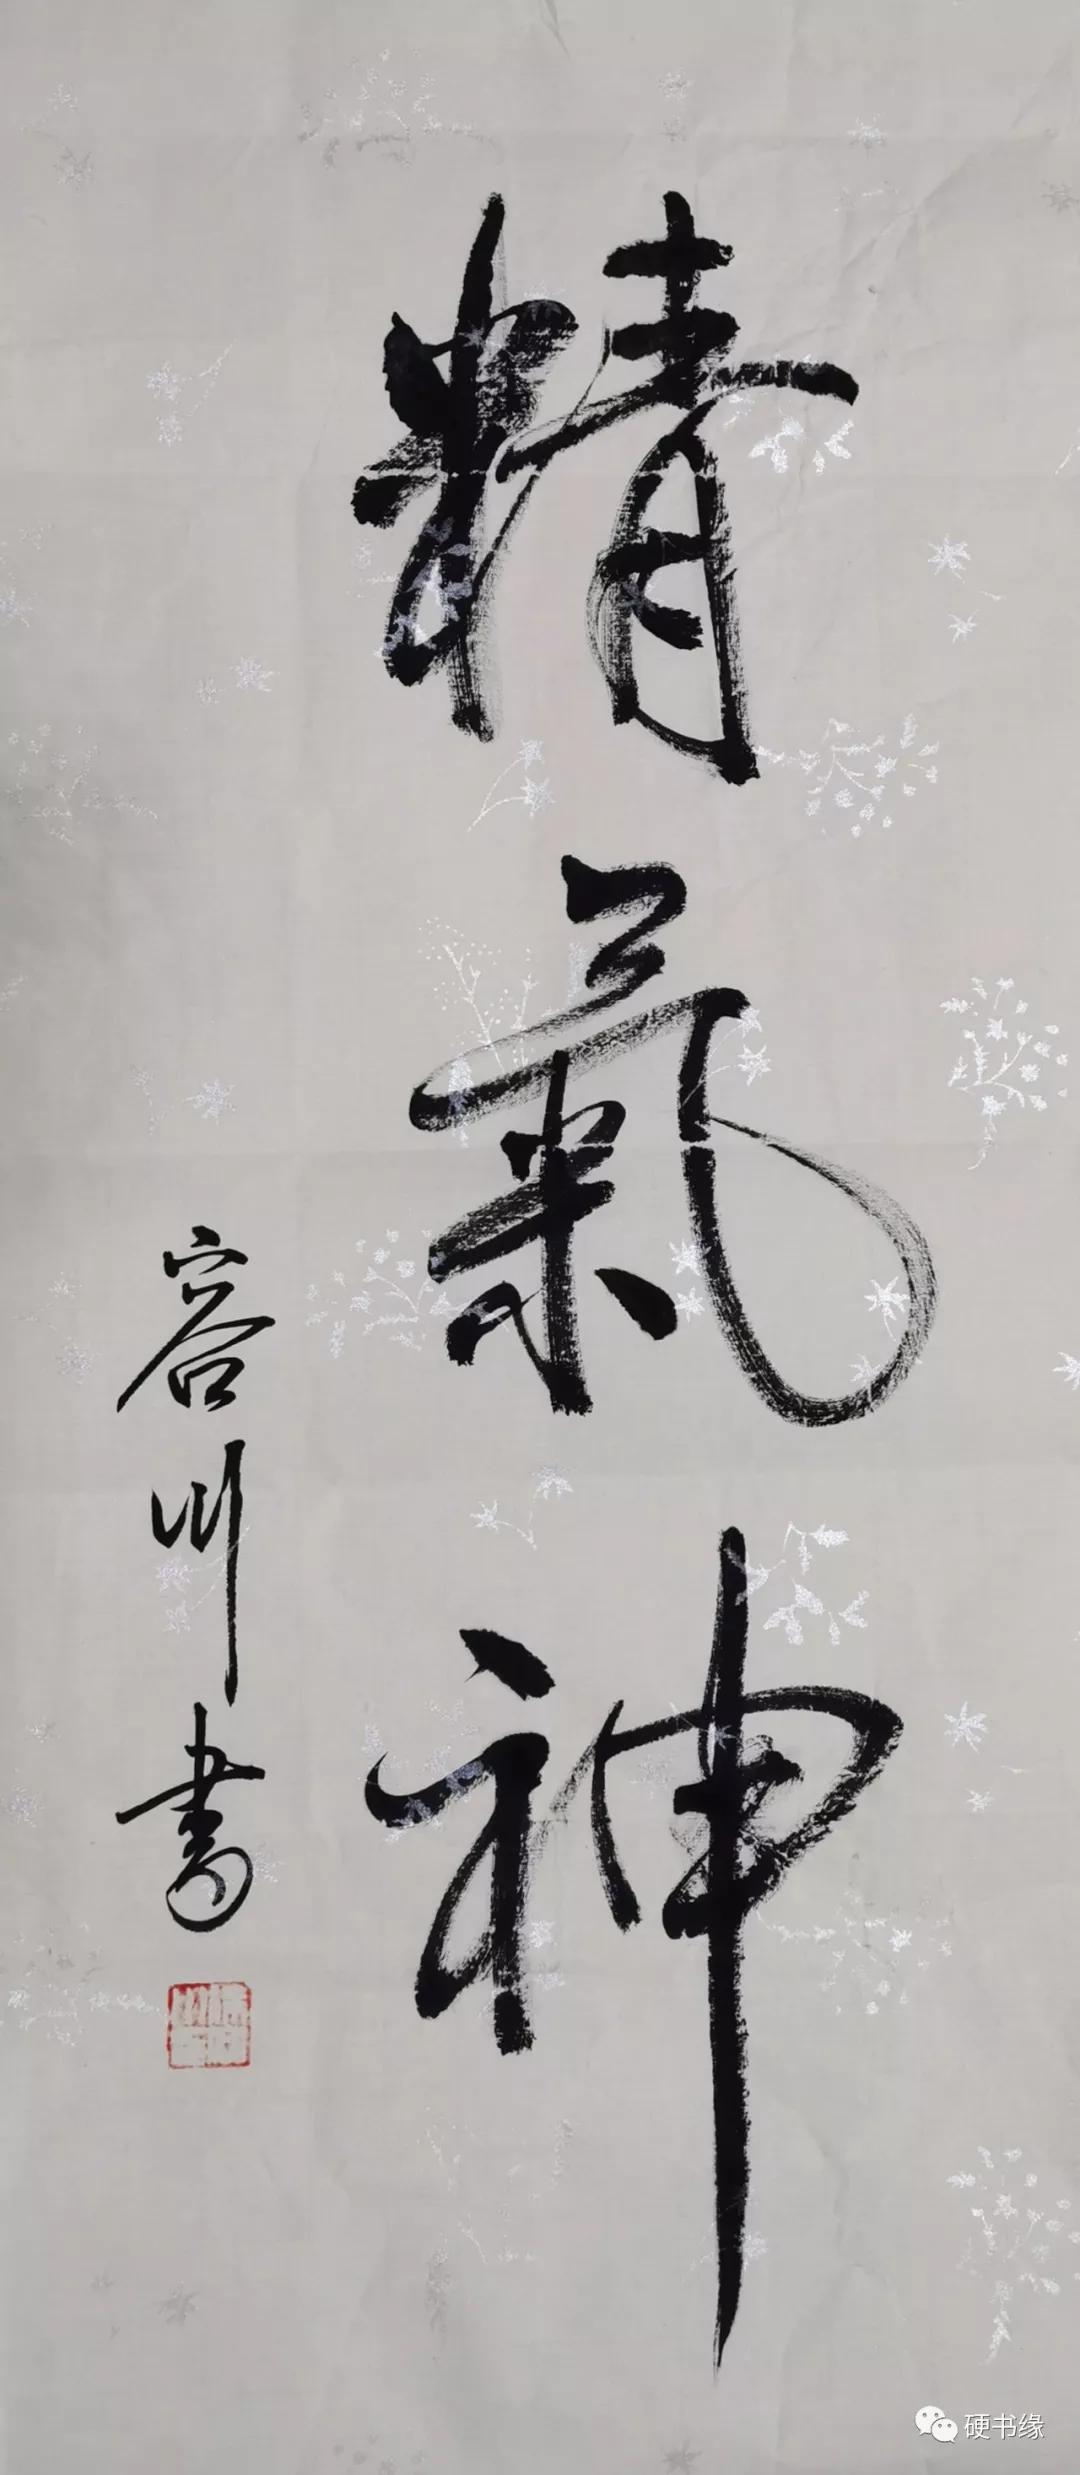 精氣神
容川書
硬书缘